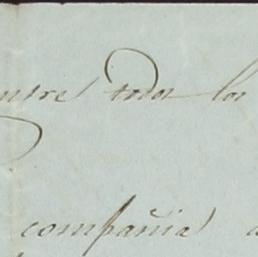 entre todos los
compañia